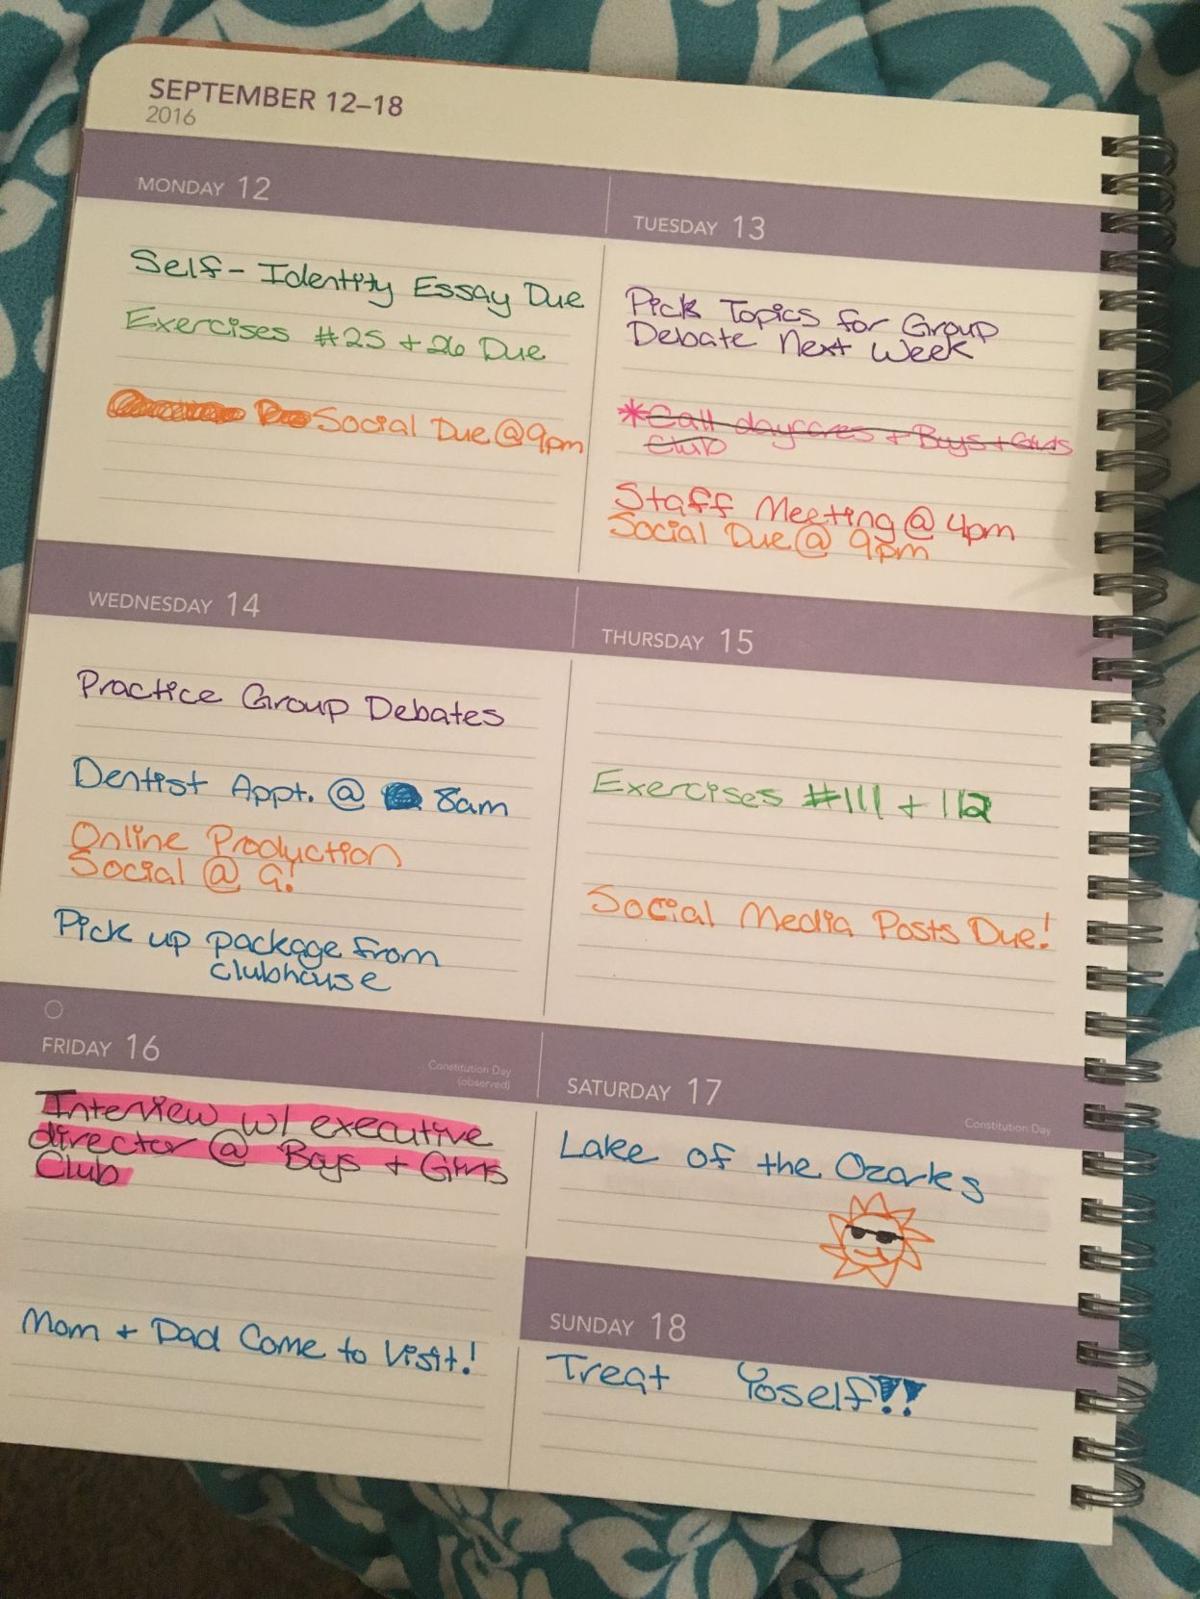 SEPTEMBER 12–18
2016
MONDAY 12
Self-Identity Essay Due
Exercises #25 + 26 Due
Social Due @ 9pm
TUESDAY 13
Pick Topics for Group
Debate Next Week
*Call daycares + Boys + Girls
Club
Staff Meeting @ 4pm
Social Due @ 9pm
WEDNESDAY 14
Practice Group Debates
Dentist Appt. @ 8am
Online Production
Social @ 9!
Pick up package from
clubhouse
THURSDAY 15
Exercises #111 + 112
Social Media Posts Due!
FRIDAY 16
Constitution Day
(observed)
Interview w/ executive
director @ Boys + Girls
Club
Mom + Dad Come to Visit!
SATURDAY 17
Constitution Day
Lake of the Ozarks
SUNDAY 18
Treat Yoself!!